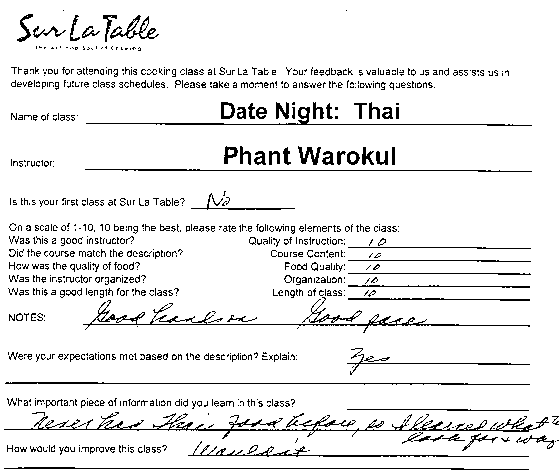 Sur La Table
The Art and Soul of Cooking
Thank you for attending this cooking class at Sur La Table. Your feedback is valuable to us and assists us in
developing future class schedules. Please take a moment to answer the following questions.
Name of class: Date Night: Thai
Instructor: Phant Warokul
Is this your first class at Sur La Table? No
On a scale of 1-10, 10 being the best, please rate the following elements of the class:
Was this a good instructor? Quality of Instruction: 10
Did the course match the description? Course Content: 10
How was the quality of food? Food Quality: 10
Was the instructor organized? Organization: 10
Was this a good length for the class? Length of class: 10
NOTES: Good hands on Good pace
Were your expectations met based on the description? Explain: Yes
What important piece of information did you learn in this class?
Never had Thai food before, so I learned what to
look for & way
How would you improve this class? Wouldn't